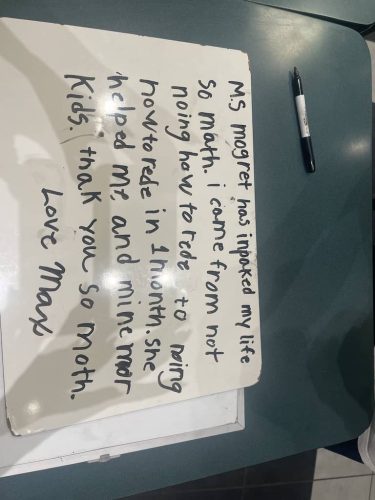 M.S mogret has inpaked my life
so math. i came from not
noing how to rede to noing
how to rede in 1 month. she
helped me and mine mor
kids. thak you so moth.
Love Max